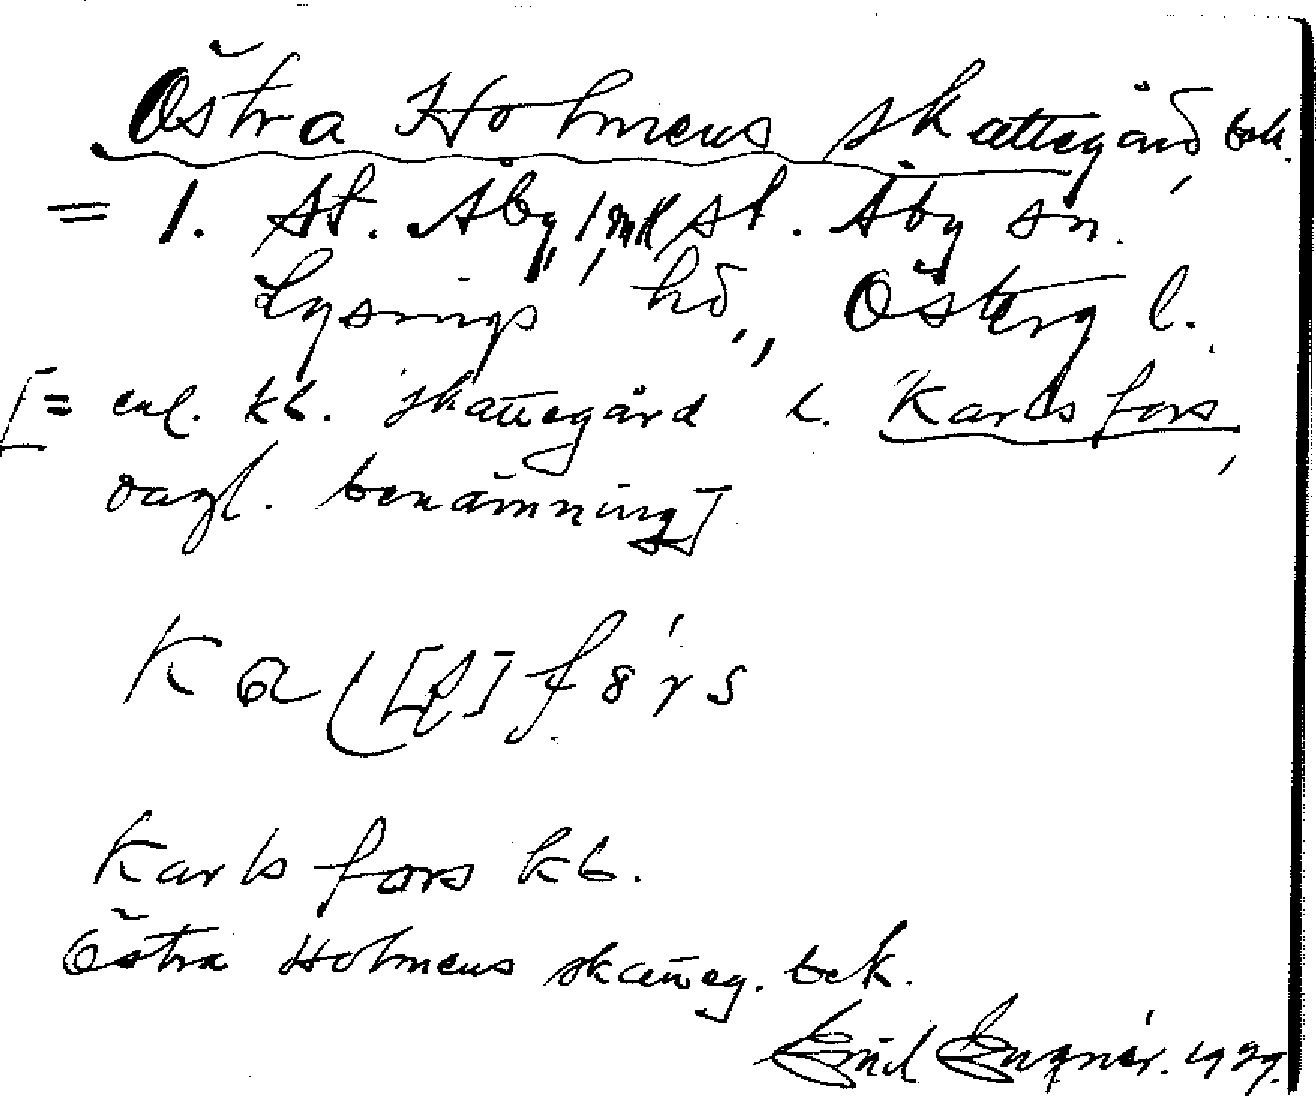 Östra Holmens skattegård, bek.
= 1. St. Åby, 1 mtl St. Åby sn.
Lysings hd., Österg. l.
[= enl. kb. skattegård l. Karlsfors,
dagl. benämning]
fórs
Karlsfors kb.
Östra Holmens skatteg. bek.
Emil 1929.